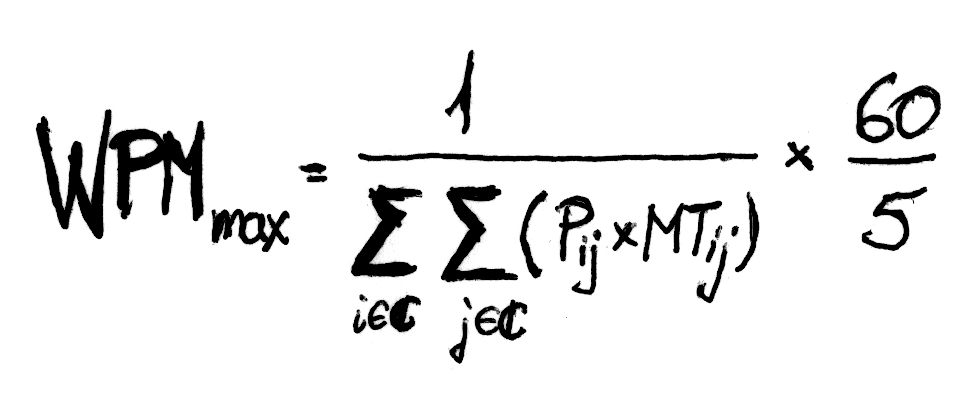 WPM_max = 1 / (∑_{i∈ℂ} ∑_{j∈ℂ} (P_ij × MT_ij)) × 60/5